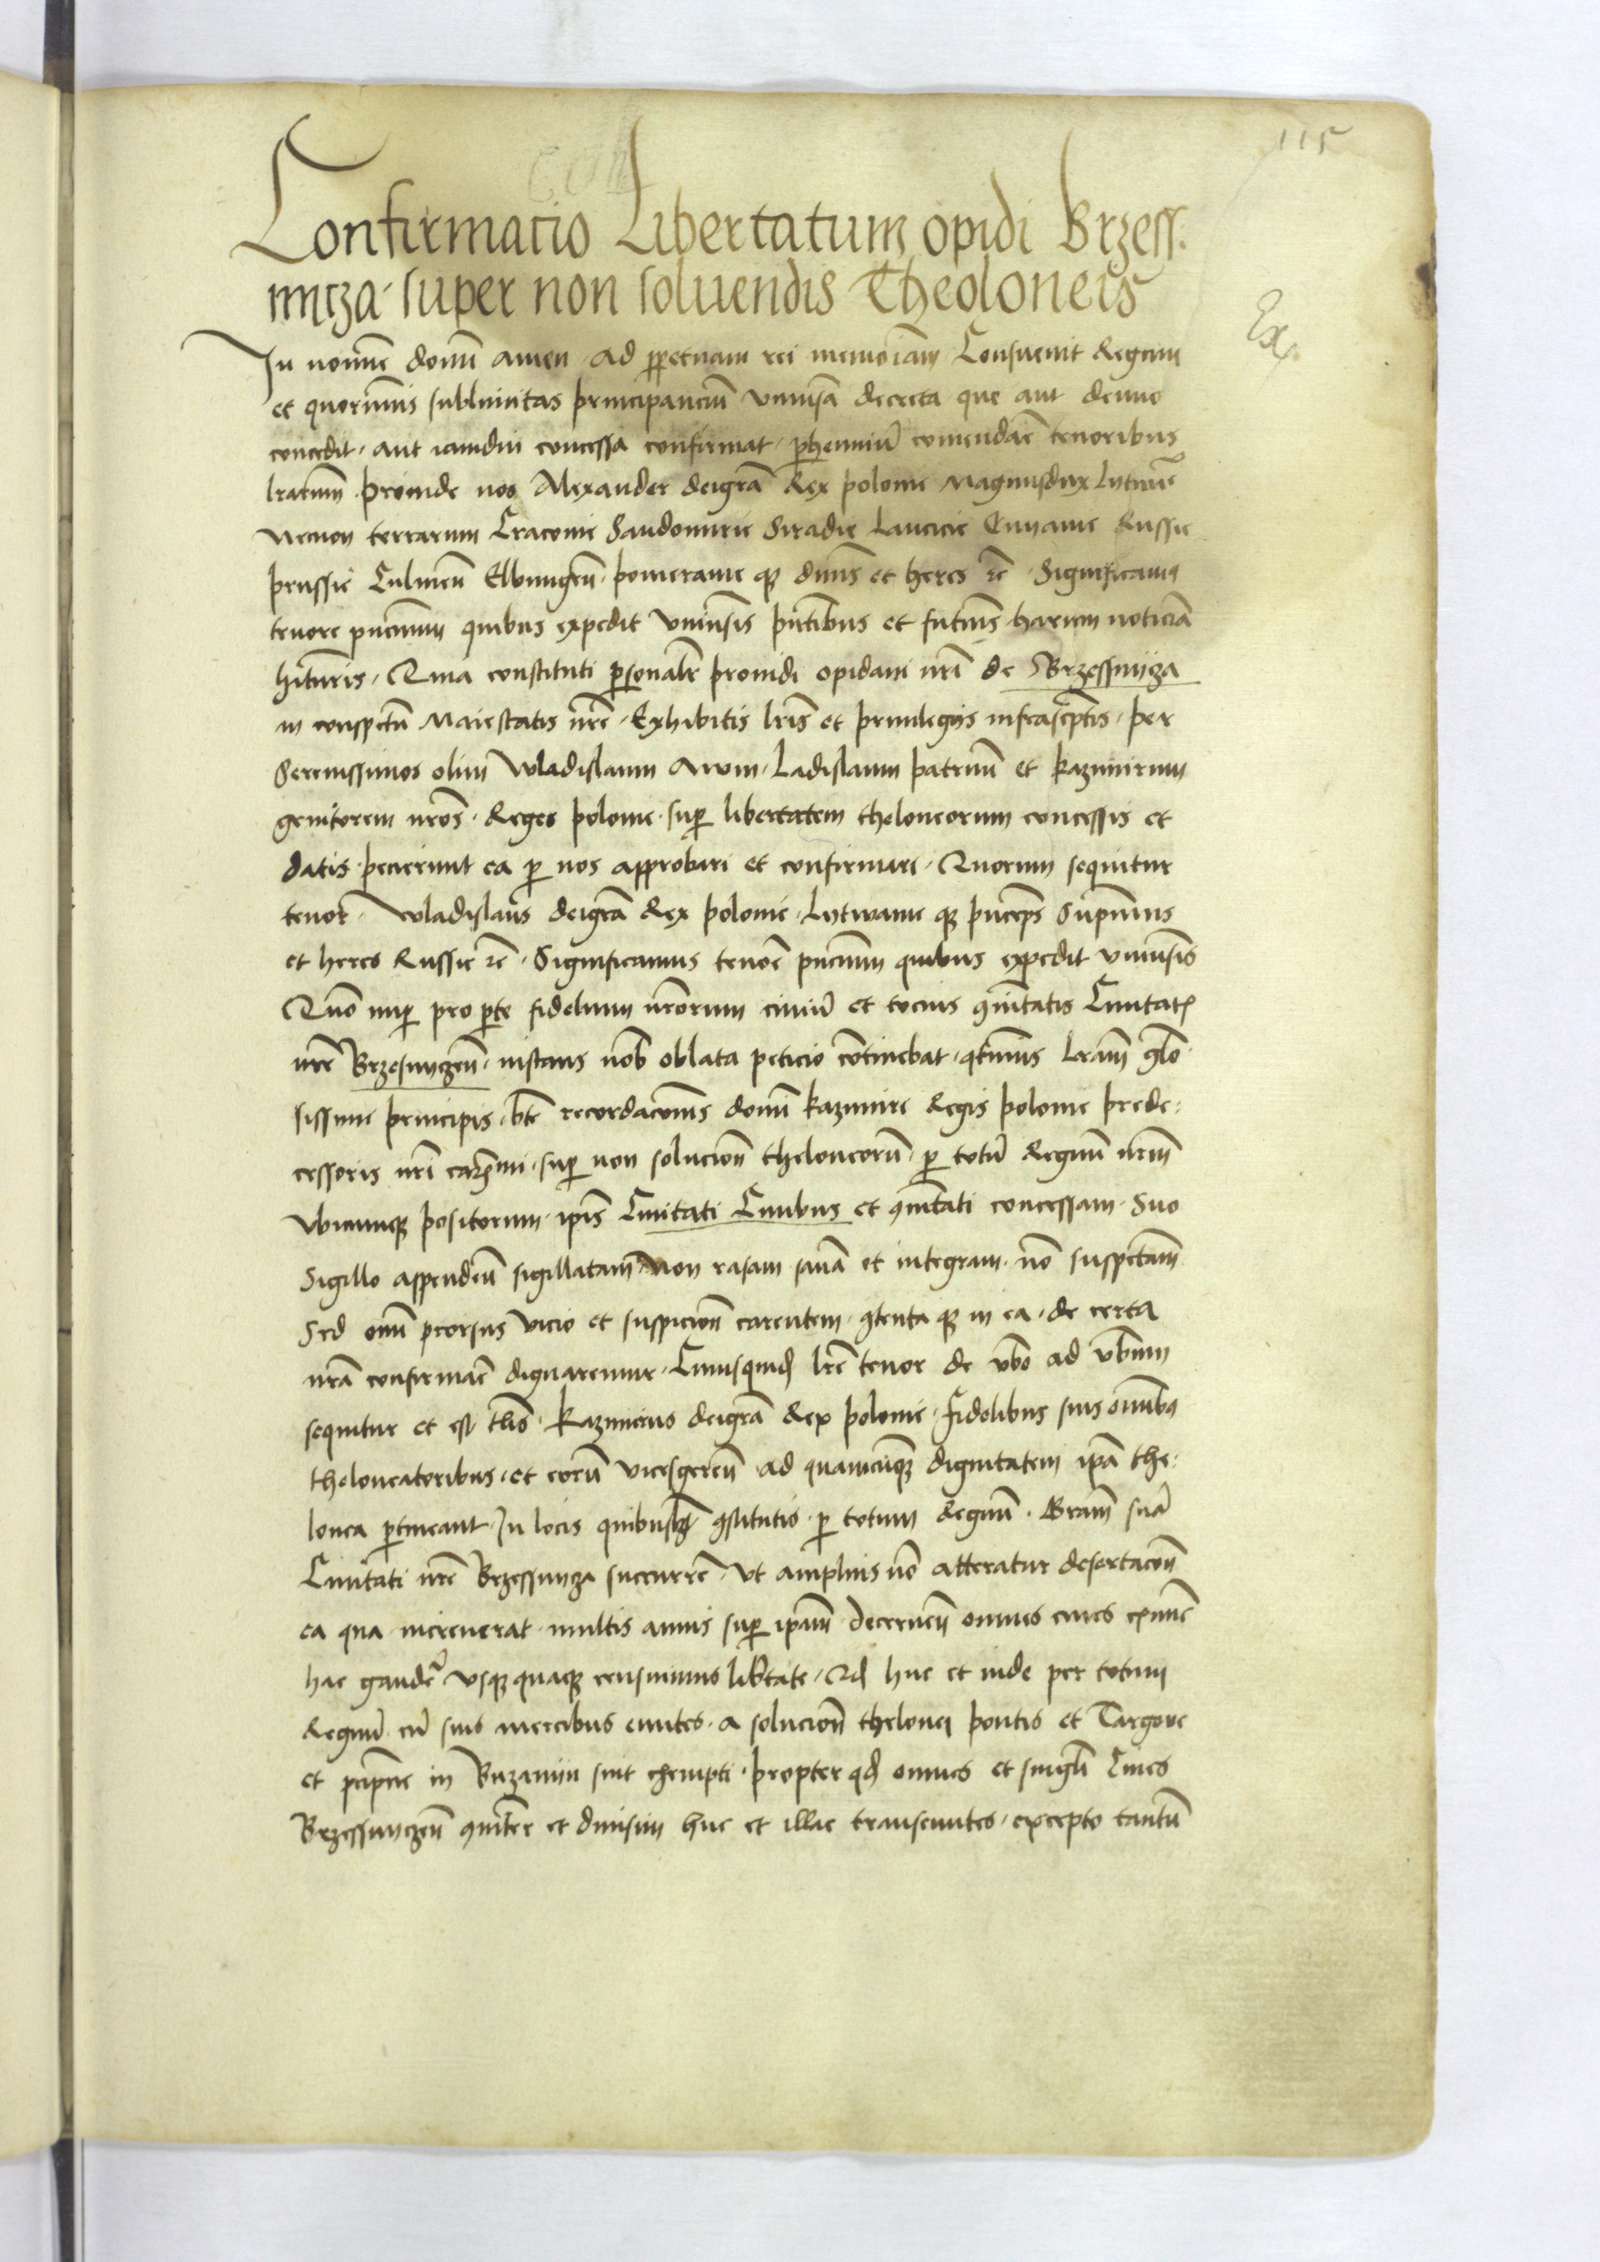 115
Confirmacio Libertatum opidi Brzess-
nicza super non soluendis Theoloneis
Ex
In nomine domini amen Ad ppetuam rei memoriam Consuevit Regum
et quorumuis sublimitas principancium Vniuersa decreta que aut denuo
concedit aut iamdiu concessa confirmat perhenniu comendare tenoribus
lrarum Proinde nos Alexander deigra Rex polonie Magnusdux Lytuanie
Necnon terrarum Cracouie Sandomirie Siradie Lancicie Cuyauie Russie
prussie Culmen Elbingen pomeranie q dnus et heres rc Significamus
tenore pncium quibus expedit Vniuersis pntibus et futuris harum noticia
hituris Quia constituti personalr prouidi opidani nri de Brzessnyza
in conspctu Maiestatis nre Exhibitis lris et priuilegiis infrascptis per
Serenissimos olim Wladislaum Auum Ladislaum patruu et Kazimirum
genitorem nros Reges polonie sup libertatem theloneorum concessis et
datis pecierunt ea p nos approbari et confirmari Quorum sequitur
tenor Wladislaus deigra Rex polonie Lytwanie q princeps Supremus
et heres Russie rc Significamus tenore pncium quibus expedit Vniuersis
Quo nup pro pte fidelium nrorum ciuiu et tocius comitatis Ciuitatis
nre Brzesniczen instans nob oblata peticio continebat qtenus lram glo
sissimi principis bte recordaconis domi Kazimiri Regis polonie prede-
cessoris nri carissimi sup non solucion theloneoru p totu Regnu nrm
Vbicumq positorum ipis Ciuitati Ciuibus et comitati concessam Suo
Sigillo appenden sigillatam Non rasam sana et integram no suspectam
Sed omi prorsus vicio et suspicion carentem contenta q in ea de certa
nra confirmare dignaremur Cuiusquid lre tenor de vbo ad vbum
sequitur et est tlis Kazimirus deigra Rex polonie fidelibus suis omibus
theloneatoribus et eoru vicesgeren ad quamcumq dignitatem ipa the-
lonea ptineant In locis quibuslz constitutis p totum Regnu Gram sua
Ciuitati nre Brzessnicza succurrere Vt amplius no atteratur desertacon
ea qua increuerat multis annis sup ipam decernen omnes ciues eximie
hac gaudere vsq quaq censuimus libertate Qd huc et inde per totum
Regnu cu suis mercibus euntes a solucion thelonei pontis et Targoue
et pcipue in Buzanin sint exempti propter qd omnes et singli Ciues
Brzessniczen comiter et diuisim huc et illac transeuntes excepto tantu